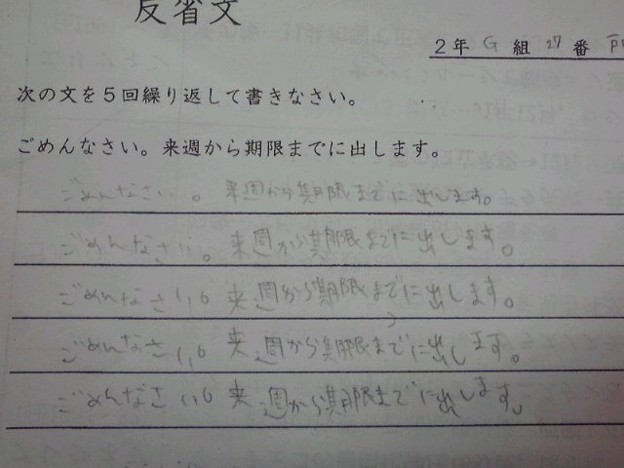 反省文
2年 G 組 27 番
次の文を5回繰り返して書きなさい。
ごめんなさい。来週から期限までに出します。
ごめんなさい。来週から期限までに出します。
ごめんなさい。来週から期限までに出します。
ごめんなさい。来週から期限までに出します。
ごめんなさい。来週から期限までに出します。
ごめんなさい。来週から期限までに出します。